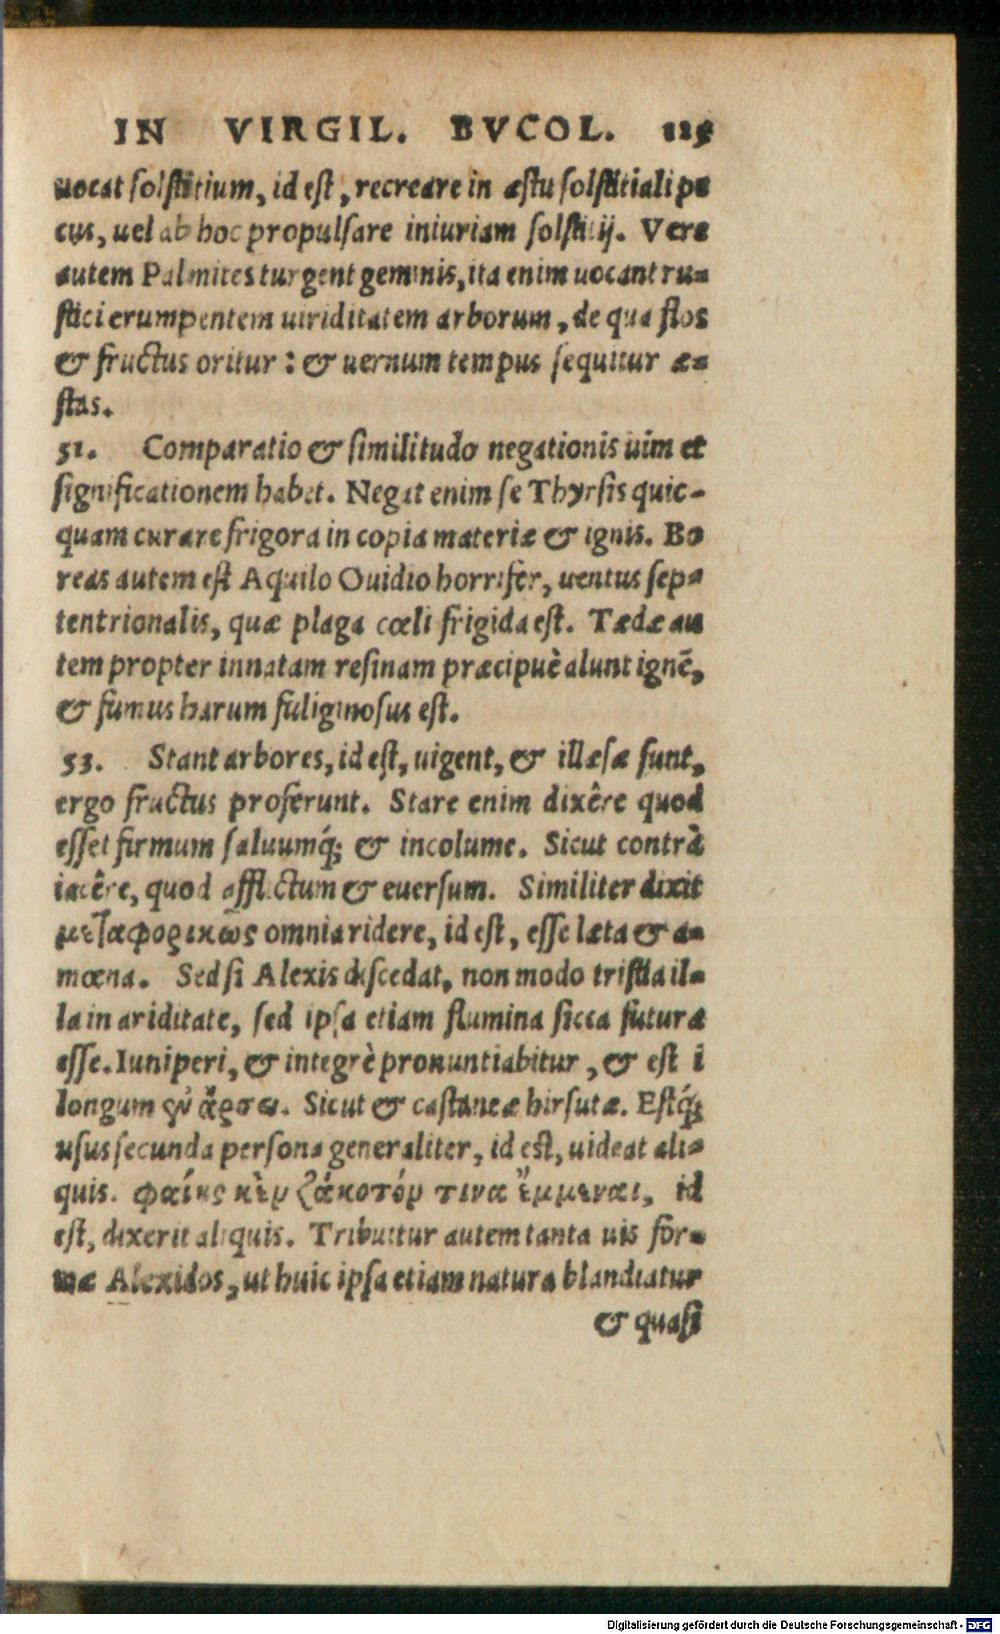 IN VIRGIL. BVCOL. 115
uocat solstitium, id est, recreare in æstu solstitiali pe
cus, uel ab hoc propulsare iniuriam solstitij. Vere
autem Palmites turgent gemmis, ita enim uocant ru-
stici erumpentem uiriditatem arborum, de qua flos
& fructus oritur: & uernum tempus sequitur æ-
stas.
51. Comparatio & similitudo negationis uim et
significationem habet. Negat enim se Thyrsis quic-
quam curare frigora in copia materiæ & ignis. Bo
reas autem est Aquilo Ouidio horrifer, uentus sep-
tentrionalis, quæ plaga cœli frigida est. Tædæ au
tem propter innatam resinam præcipuè alunt ignē,
& fumus harum fuliginosus est.
53. Stant arbores, id est, uigent, & illæsæ sunt,
ergo fructus proferunt. Stare enim dixêre quod
esset firmum saluumq́; & incolume. Sicut contrà
iacêre, quod afflictum & euersum. Similiter dixit
μεταφορικως omnia ridere, id est, esse læta & a-
mœna. Sed si Alexis discedat, non modo tristia il-
la in ariditate, sed ipsa etiam flumina sicca futura
esse. Iuniperi, & integrè pronuntiabitur, & est i
longum ἐν ἄρσει. Sicut & castaneæ hirsutæ. Estq́;
usus secunda persona generaliter, id est, uideat ali-
quis. φαίης κὲν ζάκοτόν τινα ἔμμεναι, id
est, dixerit aliquis. Tribuitur autem tanta uis for-
mæ Alexidos, ut huic ipsa etiam natura blandiatur
& quasi
Digitalisierung gefördert durch die Deutsche Forschungsgemeinschaft - DFG